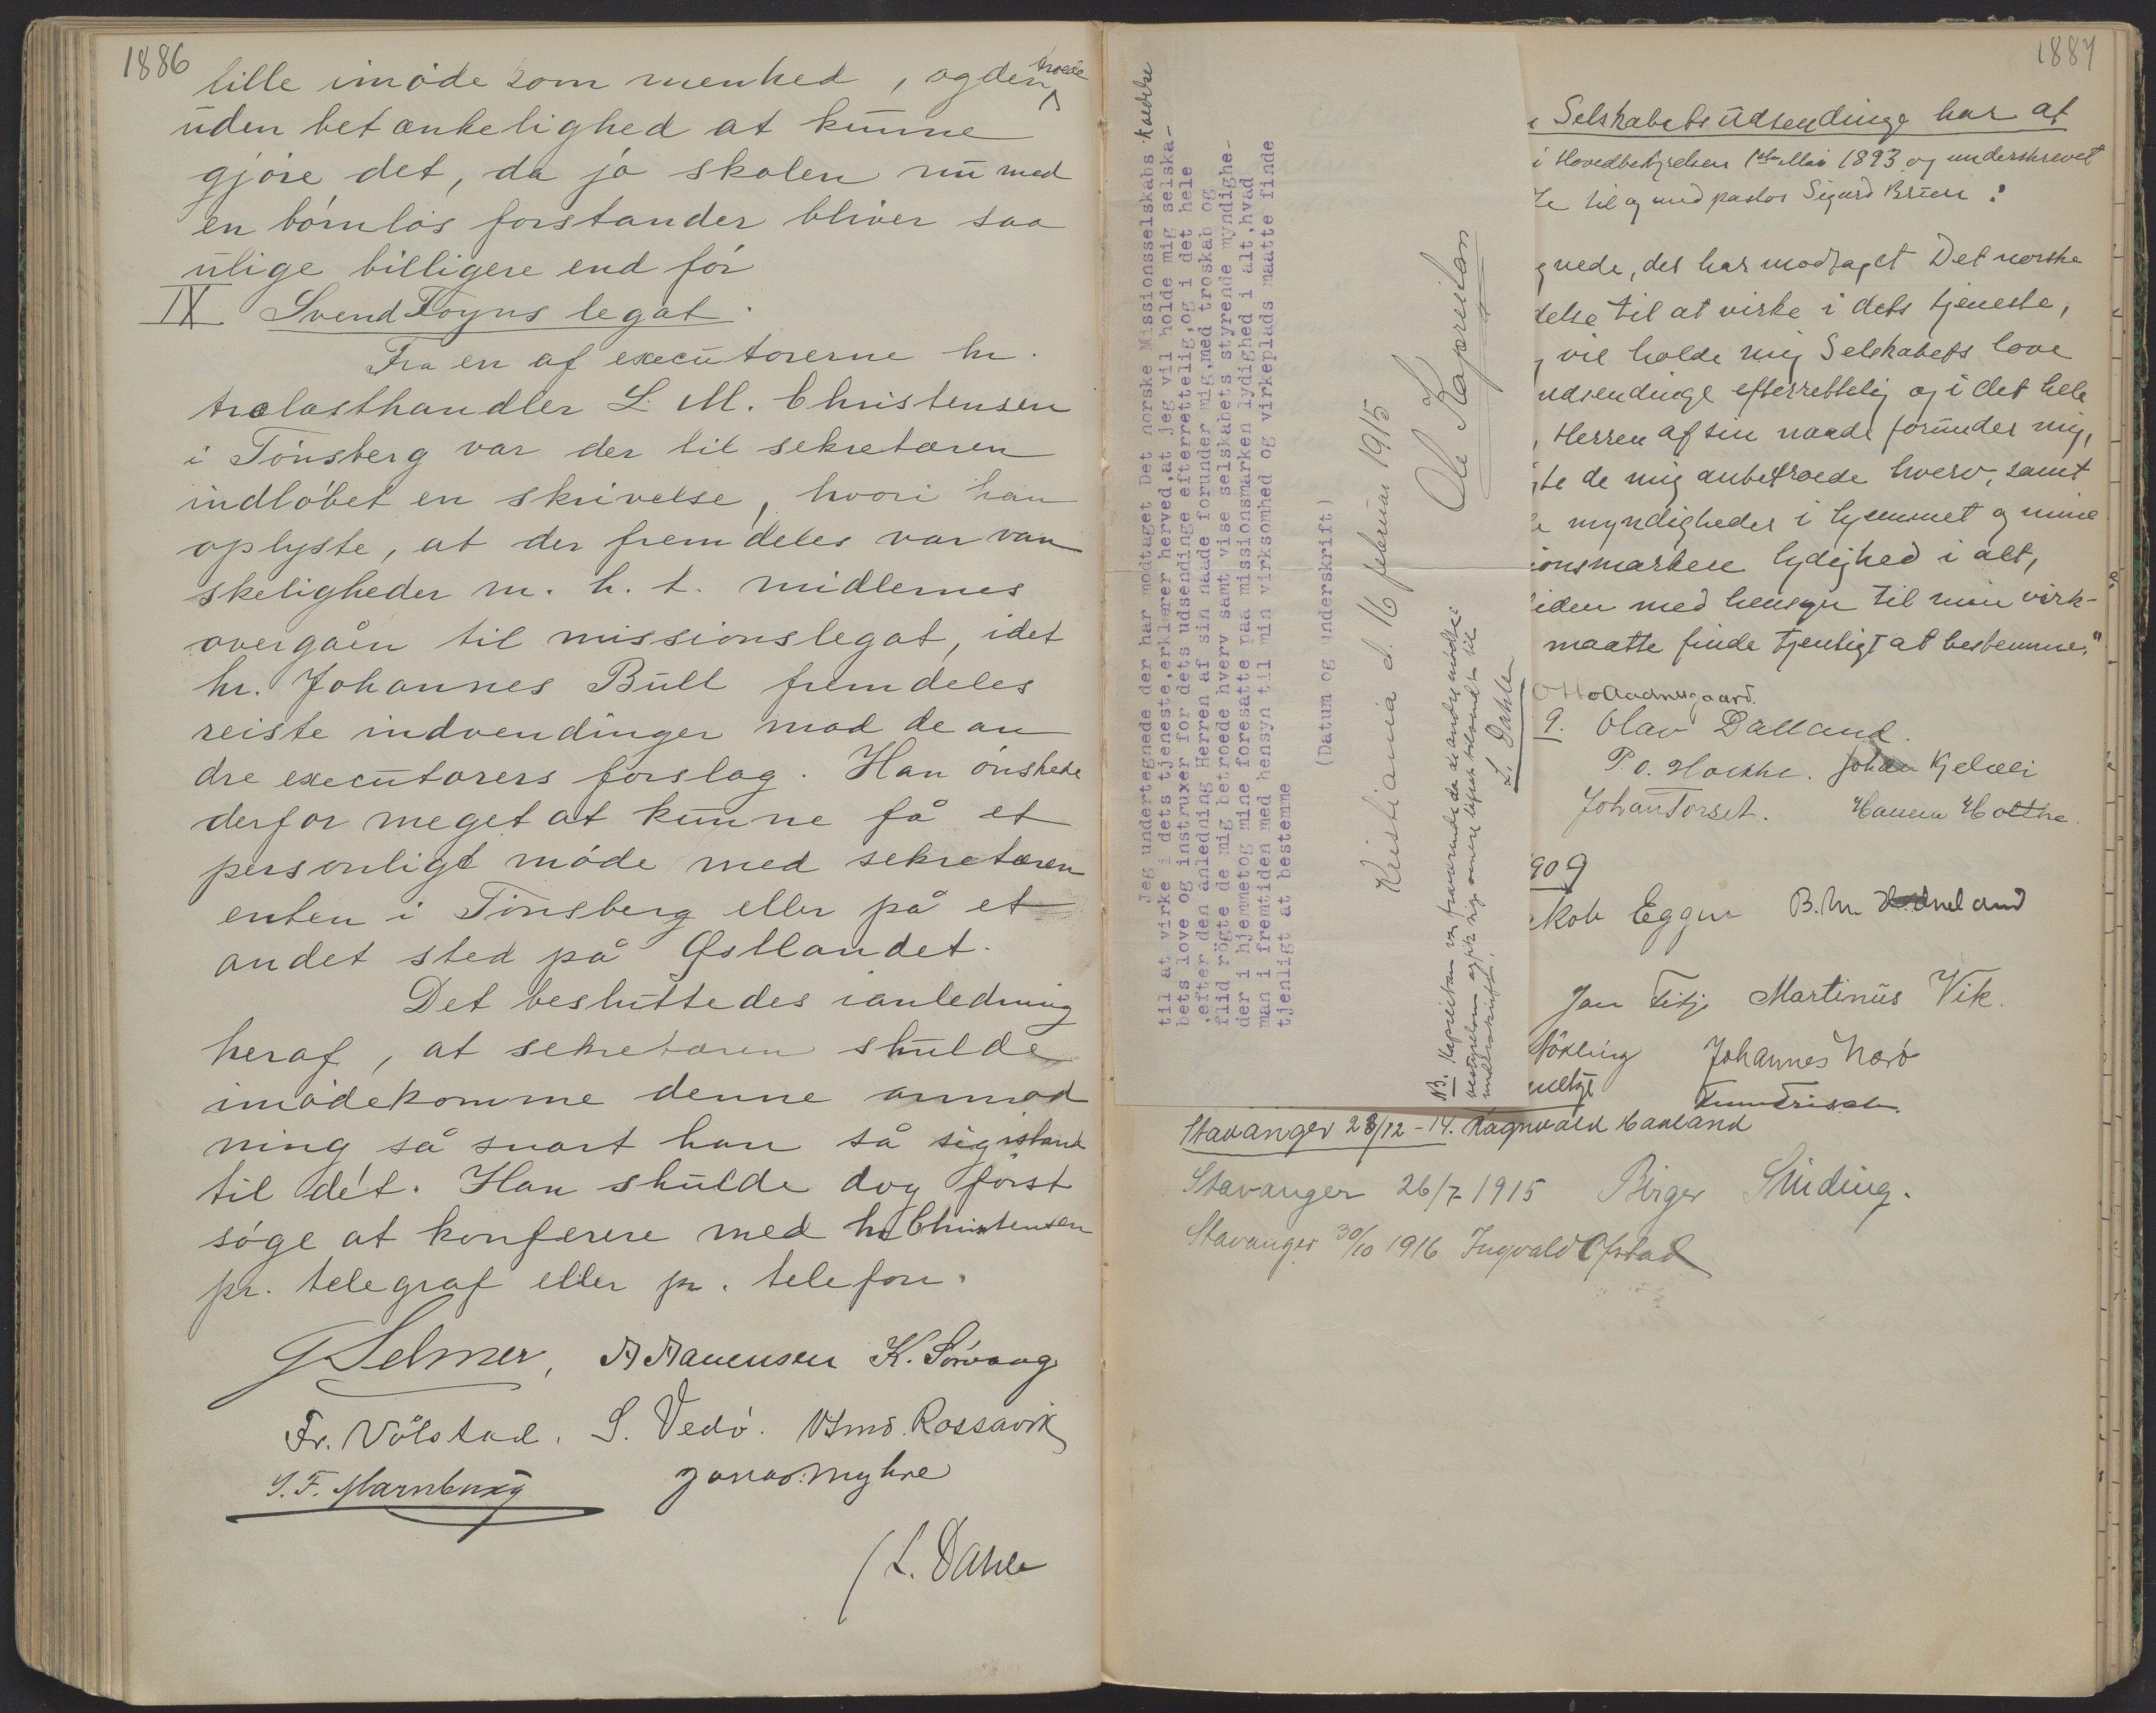 1886
lille imöde som menhed, og den troede
uden betænkelighed at kunne
gjöre det, da jo skolen nu med
en börnlös forstander bliver saa
ulige billigere end för
IX Svend Foyns legat.
Fra en af executorerne hr.
trælasthandler L. M. Christensen
i Tönsberg var der til sekretæren
indlöbet en skrivelse, hvori han
oplyste, at der fremdeles var van
skeligheder m. h. t. midlernes
overgåen til missionslegat, idet
hr. Johannes Bull fremdeles
reiste indvendinger mod de an
dre executorers forslag. Han önskede
derfor meget at kunne få et
personligt möde med sekretæren
enten i Tönsberg eller på et
andet sted på Østlandet.
Det besluttedes i anledning
heraf, at sekretæren skulde
imödekomme denne anmod
ning så snart han så sig istand
til dét. Han skulde dog först
söge at konferere med hr Christensen
pr. telegraf eller pr. telefon.
G Selmer, A Aanensen K. Sörvaag
Fr. Völstad. S. Vedö. Rossavik
S. F. Marnburg Jonas Myhre
/ L. Dahle
1887
Jeg undertegnede der har modtaget Det norske Missionsselskabs kaldelse
til at virke i dets tjeneste,erklærer herved,at jeg vil holde mig selska-
bets love og instruxer for dets udsendinge efterrettelig,og i det hele
,efter den anledning Herren af sin naade forunder mig,med troskab og
flid rögte de mig betroede hverv samt vise selskabets styrende myndighe-
der i hjemmetog mine foresatte paa missionsmarken lydighed i alt,hvad
man i fremtiden med hensyn til min virksomhed og virkeplads maatte finde
tjenligt at bestemme
(Datum og underskrift)
Kristiania d. 16 februar 1915
Ole Kapreitan
NB. Kapreitan var fraværende da de andre mödte i
bestyrelsen og fik
underskrift.
L. Dahle
Selskabets Udsendinge har at
i Hovedbestyrelsen 1ste Mai 1893 og underskrevet
te til og med pastor Sigurd Bruun:
gnede, der har modtaget Det norske
delse til at virke i dets tjeneste,
vil holde mig Selskabets love
udsendinge efterrettelig og i det hele
, Herren af sin naade forunder mig,
gte de mig anbetroede hverv, samt
e myndigheder i hjemmet og mine
ionsmarken lydighed i alt,
iden med hensyn til min virk-
maatte finde tjenligt at bestemme."
Otto Aadnesgaard.
9. Olav Dalland.
P. O. Holthe. Johan Kjelvei
Johan Torset. Hanna Holthe.
909
kob Eggen B. M. Hodneland
Jan Titje Martinus Vik.
Johannes Narö
Stavanger 28/12 - 14. Ragnvald Haaland
Stavanger 26/7 1915 Birger Sinding.
Stavanger 30/10 1916 Ingvald Ofstad